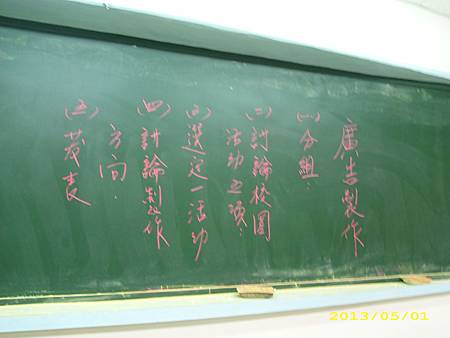 廣告製作
(一)分組:
(二)討論校園
活动五項:
(三)選定一活动
(四)討論製作
方向.
(五)發表
2013/05/01